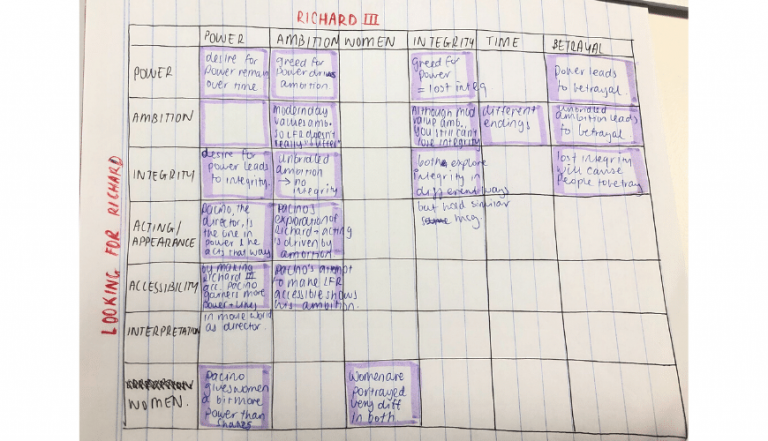 RICHARD III
POWER AMBITION WOMEN INTEGRITY TIME BETRAYAL
LOOKING FOR RICHARD
POWER
desire for
Power remain
over time
greed for
Power drives
ambition.
Greed for
Power
= lost integ
Power leads
to betrayal.
AMBITION
modern day
values amb.
so LFR doesn't
really
Although mod
value amb,
you still can't
lose integrity
different
endings
unbridled
ambition leads
to betrayal.
INTEGRITY
desire for
power leads
to integrity.
unbridled
ambition
→ no
integrity
both explore
integrity in
different ways
but hold similar
msg.
lost integrity
will cause
People to betray
ACTING/
APPEARANCE
Pacino, the
director, is
the one in
power & he
acts that way
Pacino's
exploration of
Richard + acting
is driven by
ambition
ACCESSIBILITY
by making
Richard III
acc. Pacino
garners more
power +
in movie world
as director.
Pacino's attempt
to make LFR
accessible shows
his ambition.
INTERPRETATION
WOMEN.
Pacino
gives women
a bit more
power than
Shakes
Women are
portrayed
very diff
in both